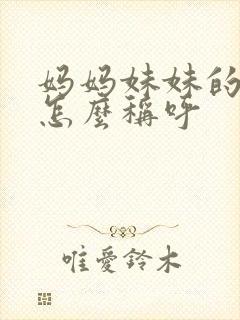 妈妈妹妹的
怎麼稱呼
唯愛鈴木